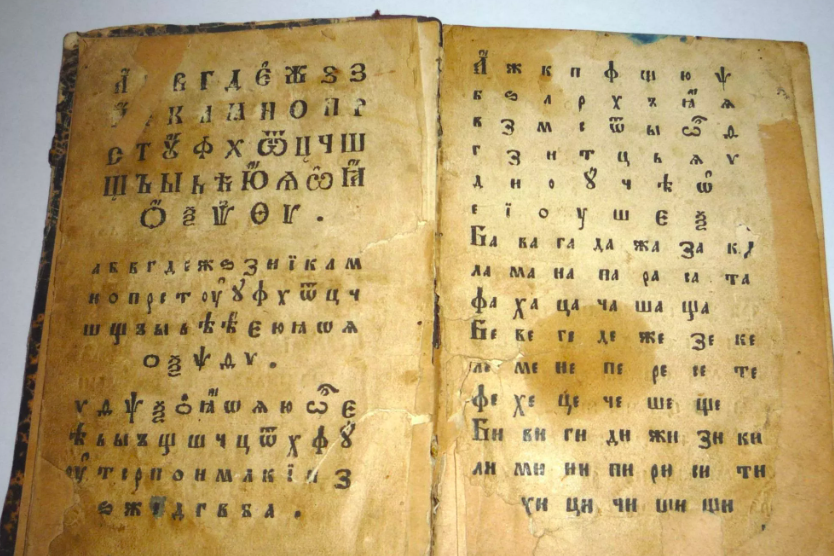 А В Г Д Е Ж Ѕ З
К Л М Н О П Р
С Т Ꙋ Ф Х Ѿ Ц Ч Ш
Щ Ъ Ы Ь Ѣ Ю Ѧ Ѽ Ꙗ
Ѻ Ѯ Ѱ Ѳ Ѵ .
а б в г д е ж ѕ з н ї к л м
н о п р с т оу ꙋ ф х ѿ ц ч
ш щ ъ ы ь ѣ є ю ꙗ ѡ ѧ
о ѯ ѱ д ѵ .
ѵ д ѱ ѯ ѻ ꙗ ѡ ѧ ю ѽ є
ѣ ь ы ъ щ ш ч ц ѿ х ф ꙋ
оу т с р п о н м л к ї и з
ѕ ж е д г в б а .
А ж к п ф щ ю ѱ
б ѕ л р х ъ ꙗ ѧ
в з м с ѿ ы ѽ д
г з н т ц ь ѧ ѵ
д и о ꙋ ч ѣ ѡ
е ї о у ш є ѯ
Ба ва га да жа за ка
ла ма на па ра са та
фа ха ца ча ша ща
Бе ве ге де же зе ке
ле ме не пе ре се те
фе хе це че ше ще
Би ви ги ди жи зи ки
ли ми ни пи ри си ти
хи ци чи ши щи